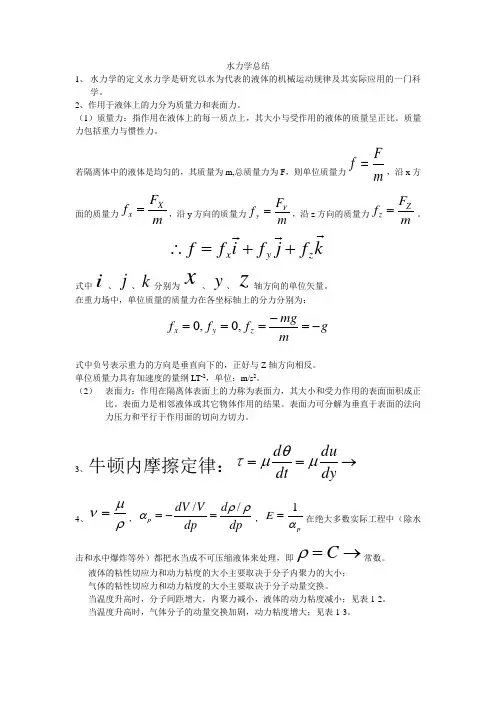 水力学总结
1、 水力学的定义水力学是研究以水为代表的液体的机械运动规律及其实际应用的一门科
学。
2、作用于液体上的力分为质量力和表面力。
（1）质量力：指作用在液体上的每一质点上，其大小与受作用的液体的质量呈正比。质量
力包括重力与惯性力。
若隔离体中的液体是均匀的，其质量为 m,总质量力为 F，则单位质量力 f = F/m ，沿 x 方
面的质量力 f_x = F_X/m ，沿 y 方向的质量力 f_y = F_Y/m ，沿 z 方向的质量力 f_z = F_Z/m 。
∴ f = f_x i⃗ + f_y j⃗ + f_z k⃗
式中 i 、j 、k 分别为 x 、y 、z 轴方向的单位矢量。
在重力场中，单位质量的质量力在各坐标轴上的分力分别为：
f_x = 0, f_y = 0, f_z = −mg/m = −g
式中负号表示重力的方向是垂直向下的，正好与 Z 轴方向相反。
单位质量力具有加速度的量纲 LT⁻²，单位：m/s²。
（2） 表面力：作用在隔离体表面上的力称为表面力，其大小和受力作用的表面面积成正
比。表面力是相邻液体或其它物体作用的结果。表面力可分解为垂直于表面的法向
力压力和平行于作用面的切向力切力。
3、牛顿内摩擦定律：τ = μ dθ/dt = μ du/dy →
4、ν = μ/ρ ，α_p = − (dV/V)/dp = (dρ/ρ)/dp ，E = 1/α_p 在绝大多数实际工程中（除水
击和水中爆炸等外）都把水当成不可压缩液体来处理，即 ρ = C → 常数。
液体的粘性切应力和动力粘度的大小主要取决于分子内聚力的大小；
气体的粘性切应力和动力粘度的大小主要取决于分子动量交换。
当温度升高时，分子间距增大，内聚力减小，液体的动力粘度减小；见表 1-2。
当温度升高时，气体分子的动量交换加剧，动力粘度增大；见表 1-3。